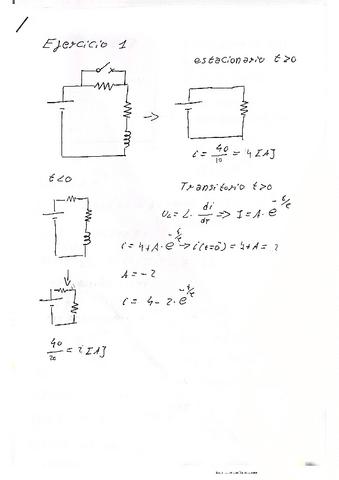 Ejercicio 1
estacionario t>0
i = 40/10 = 4 [A]
t<0
Transitorio t>0
UL = L · di/dt => I = A · e^-t/τ
i = 4 + A · e^-t/τ → i(t=0) = 4 + A = 2
A = -2
i = 4 - 2 · e^-t/τ
40/20 = 2 [A]